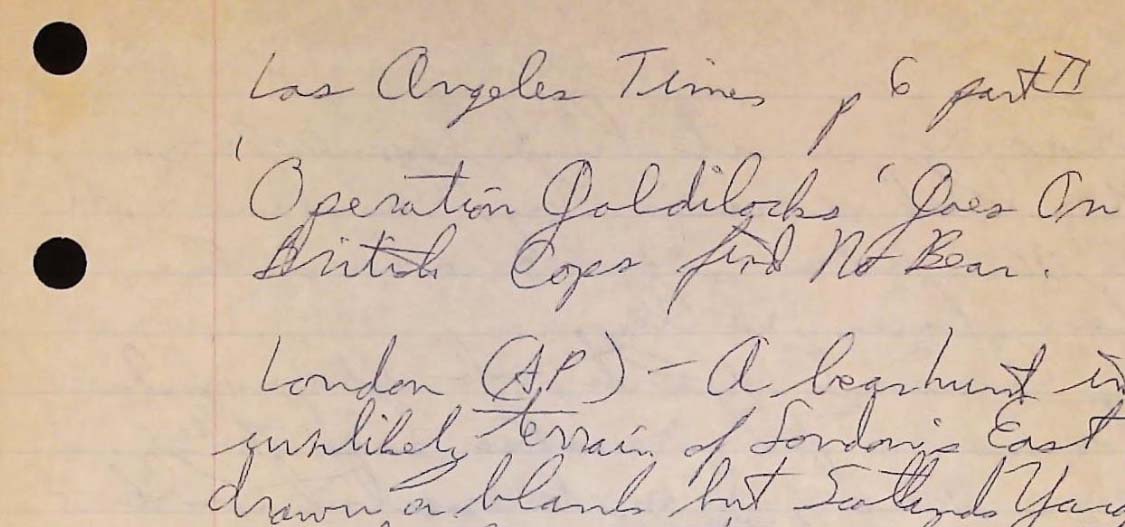 Los Angeles Times p 6 part II
'Operation Goldilocks' Goes On
British Cops find No Bear.
London (AP) - A bearhunt in
unlikely terrain of London's East
drawn a blank but Scotland Yard